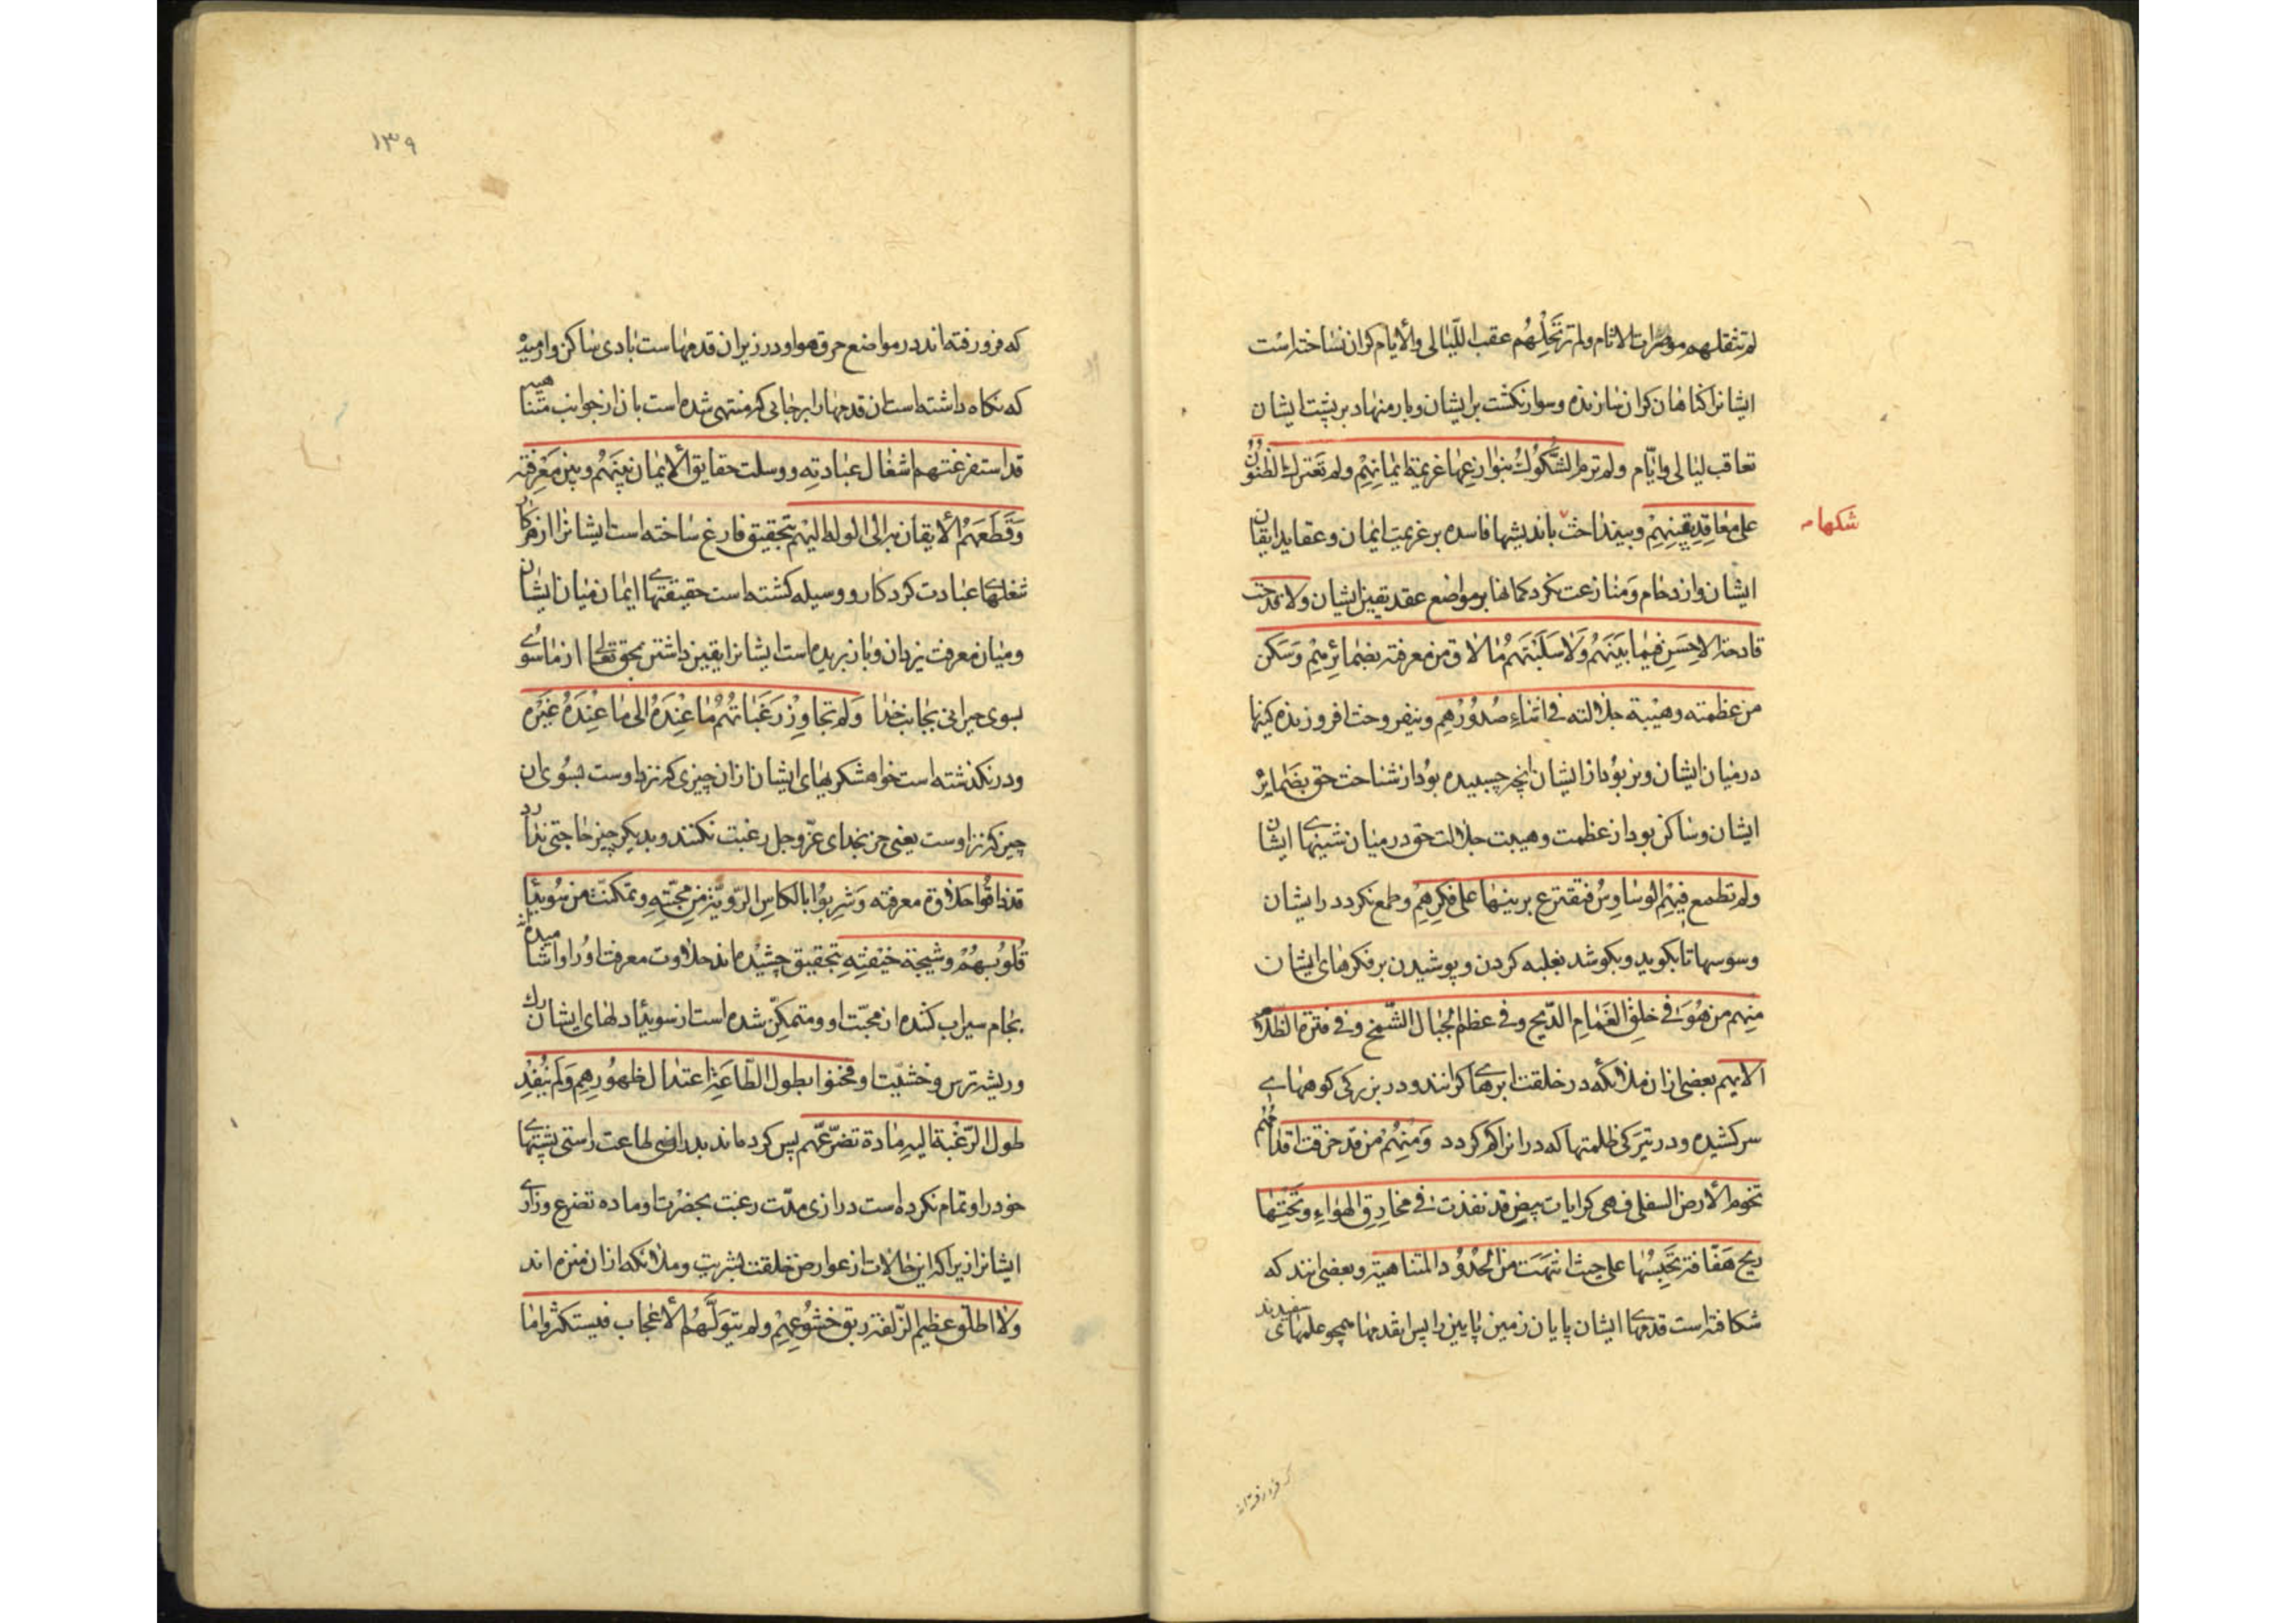 لم تثقلهم موصرات الاثام ولم ترتحلهم عقب اللیالی والأیام کران نساخته است
ایشانرا کناهان کران سازنده وسوار نکشت بر ایشان وبار منهاد بر پشت ایشان
تعاقب لیالی وایّام ولم ترم الشّکُوکُ بنوازعها عزیمة ایمانِهِمْ ولم تَعترک الظنُونُ
علی مَعاقِد یَقِینِهِمْ وبینداخت باندیشها فاسده بر عزیمت ایمان وعقاید ایقان
شکها
ایشان وازدحام وَمنازعت نکرد کمانها بر مواضع عقد یقین ایشان ولا قدحت
قادحة الاِحَنِ فیما بَیْنَهُم وَلا سَلَبَتْهُم مٰا لاق من معرفته بضمائرِهِمْ وَسَکن
من عظمته وهَیْبة جلالته فی اثناءِ صُدُوْرِهِم ونیفروخت افروزنده کینها
در میان ایشان ونربُود از ایشان انچه چسبیده بوُد از شناخت حق بضمایر
ایشان وساکن بود از عظمت وهیبت جلالت حق در میان سینهای ایشان
ولم تطمع فیهِمُ الوسَاوِسُ فتقترع برینها علی فکرِهِمْ وطمع نکردد در ایشان
وسوسها تا بکوبد وبکوشد بغلبه کردن وپوشیدن بر فکرهای ایشان
مِنهم من هُوَ فی خلق الغَمامِ الدّلح وفی عظم الجبال الشّمّخ وفی قترة الظلام
الایهم بعضی ازان ملائکه در خلقت ابرهای کرانند ودر بزرکی کوههاے
سر کشیده ودر تیرکی ظلمتها که در ان راه کم کردد وَمِنْهُمْ من قد خرقت اقدامُهُم
تخوم الأرض السفلی فهی کرایات بیضٍ قد نفذت فی مخارِقِ الهواءِ وتَحْتَها
ریح هَفّافة تَحْبِسُها علی حیث انتهت من الحُدُوْدِ المتناهیة وبعضی انند که
شکافته است قدمهای ایشان پایان زمین پایین را پس ان قدمها همچو علمهای سفیدند
که فرورفته اند
۱۳۹
که فرو رفته اند در مواضع خرق هوا ودر زیر ان قدمهاست بادی ساکن وارمیده
که نکاه داشته است ان قدمها را بر جایی که منتهی شده است بان از جوانب متناهیه
قد استفرغتهم اشغال عبادتِه ووسلت حقایق الایمان بَیْنَهُم وبین مَعْرِفَتِه
وَقَطَعَهُم الأیقان به الی الوله الیهم بتحقیق فارغ ساخته است ایشانرا از هر کار
شغلهای عبادت کردکار ووسیله کشته است حقیقتهاے ایمان میان ایشان
ومیان معرفت یزدان وباز بریده است ایشانرا یقین داشتن بحق تعالی از ماسوی
بسوی حیرانی بجانب خدا وَلم تجاوِزْ رَغَباتُهُم مٰا عِنْدَهُ الی مٰا عِنْدَ غَیْرِه
ودر نکذشته است خواهشکریهای ایشان از ان چیزی که نزد اوست بسُوی ان
چیز که نزد اوست یعنی جز بخدای عزّ وجل رغبت نکنند وبدیکر چیز حاجتی ندارد
قد ذاقُوا حلاوة معرفته وَشربُوا بالکاسِ الرّوِیّة من مَحبّتِهِ وتمکنت من سُویداء
قُلوُبِهُمْ وشیجة خیْفتِهِ بتحقیق چشیده اند حلاوت معرفت اوُ را واشامیده
بجام سیراب کننده از محبّت او ومتمکّن شده است از سویداء دلهای ایشان رک
وریشه ترس وخشیّت او فحنوا بطول الطّاعَةِ اعتدال ظهُورِهِم وَلم یُنْفِدْ
طول الرّغْبة الیه مادة تضرّعهم پس کرده اند بدرازی طاعت راستی پشتهاے
خود را وتمام نکرده است درازی مدّت رغبت بحضرت او ماده تضرع وزارے
ایشانرا زیرا که این حالات از عوارض خلقت بشریت وملائکه ازان منزه اند
ولا اطلق عظیم الزّلفة ربق خشُوعِهِمْ ولم یتوَلَّهُم الأعْجاب فیستکثروا ما